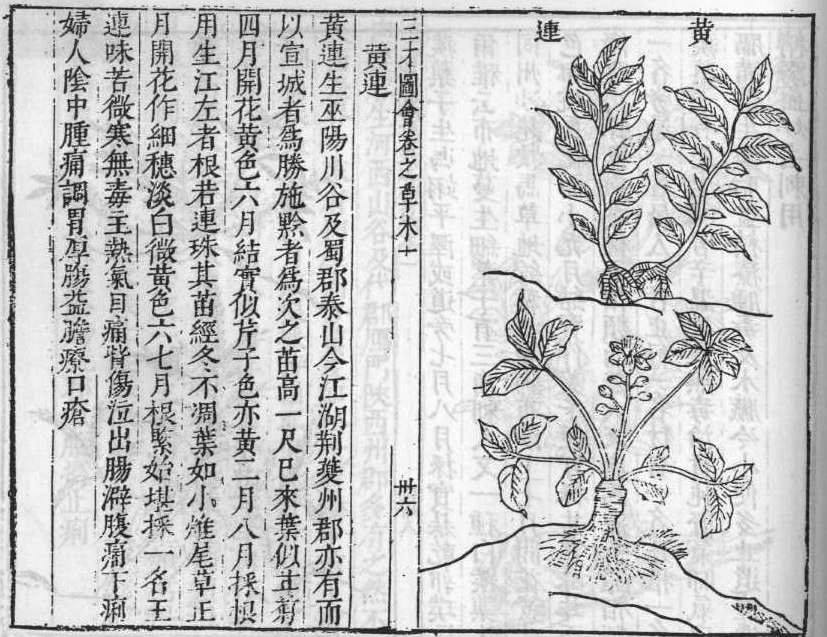 黃連
三才圖會卷之草木十
卅六
黃連
黃連生巫陽川谷及蜀郡泰山今江湖荆夔州郡亦有而
以宣城者為勝施黔者為次之苗高一尺已來葉似甘菊
四月開花黃色六月結實似芹子色亦黃二月八月採根
用生江左者根若連珠其苗經冬不凋葉如小雉尾草正
月開花作細穗淡白微黃色六七月根緊始堪採一名王
連味苦微寒無毒主熱氣目痛眥傷泣出腸澼腹痛下痢
婦人陰中腫痛調胃厚腸益膽療口瘡